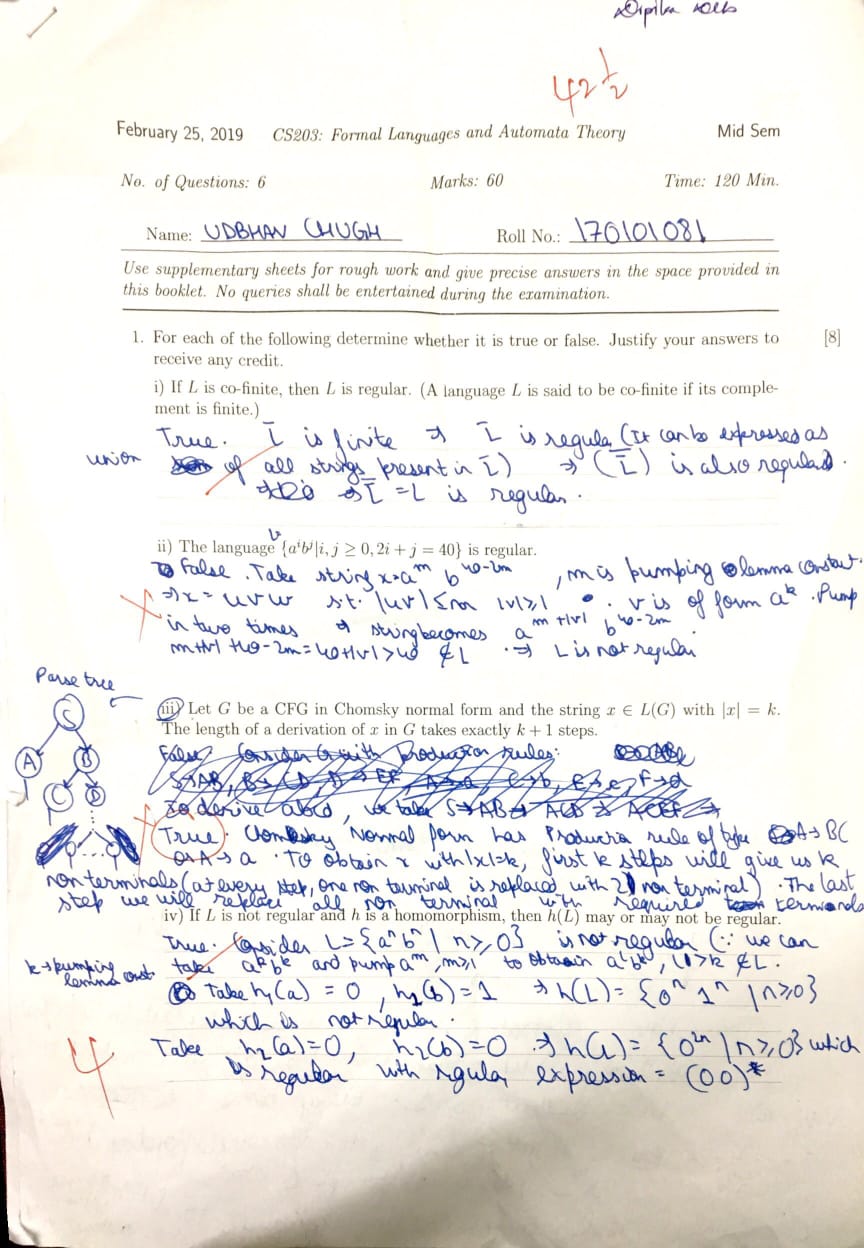 42 1/2
February 25, 2019 CS203: Formal Languages and Automata Theory Mid Sem
No. of Questions: 6 Marks: 60 Time: 120 Min.
Name: UDBHAV CHUGH Roll No.: 170101081
Use supplementary sheets for rough work and give precise answers in the space provided in
this booklet. No queries shall be entertained during the examination.
1. For each of the following determine whether it is true or false. Justify your answers to [8]
receive any credit.
i) If L is co-finite, then L is regular. (A language L is said to be co-finite if its comple-
ment is finite.)
True. L̅ is finite ⇒ L̅ is regular (It can be expresses as
union of all strings present in L̅) ⇒ (L̅) is also regular.
⇒ L̅ = L is regular.
L
ii) The language {aⁱbʲ|i, j ≥ 0, 2i + j = 40} is regular.
False. Take string x=a^m b^40-2m, m is pumping lemma constant.
⇒ x = uvw s.t. |uv| ≤ m |v|≥1 . v is of form a^k. Pump
in two times ⇒ string becomes a^m+|v| b^40-2m
m+|v|+40-2m=40+|v|>40 ∉ L ⇒ L is not regular
Parse tree
(iii) Let G be a CFG in Chomsky normal form and the string x ∈ L(G) with |x| = k.
The length of a derivation of x in G takes exactly k + 1 steps.
S
A B
C D
False Consider G with Production rules:
S→AB,
To derive abcd, we take S→AB→ACD→ACEF→
True. Chomsky Normal form has Production rule of type A→BC
or A→a. To obtain x with |x|=k, first k steps will give us k
non terminals (at every step, one non terminal is replaced with 2 non terminal). The last
step we will replace all non terminal with required terminals
iv) If L is not regular and h is a homomorphism, then h(L) may or may not be regular.
True. Consider L={aⁿbⁿ | n≥0} is not regular (∵ we can
k→pumping lemma const
take a^k b^k and pump a^m, m≥1 to obtain a^l b^k, l>k ∉ L.
Take h₁(a) = 0, h₂(b)=1 ⇒ h(L)= {0ⁿ1ⁿ | n≥0}
which is not regular.
4
Take h₂(a)=0, h₂(b)=0 ⇒ h(L)= {0²ⁿ | n≥0} which
is regular with rgular expression = (00)*